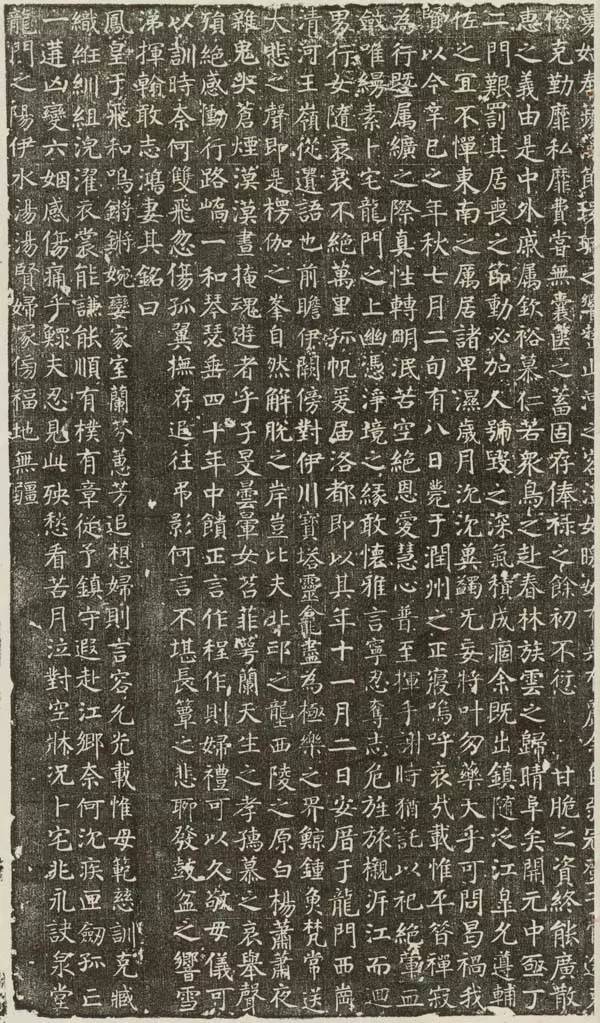 之響
儉克勤靡私靡費嘗無囊篋之蓄固存俸祿之餘初不愆　甘脆之資終能廣散
惠之義由是中外戚屬欽裕慕仁若衆鳥之赴春林族雲之歸晴阜矣開元中亟丁
二門艱罰其居喪之節動必加人號毀之深氣積成痼余既出鎮隨泛江皐允遵輔
佐之宜不憚東南之厲居諸卑濕歲月沈沈冀蠲无妄將叶勿藥大乎可問曷禍我
賢以今辛巳之年秋七月二旬有八日薨于潤州之正寢嗚呼哀哉載惟平昔禪寂
為行暨属纊之際真性轉明泯苦空絕恩愛慧心普至揮手謝時猶託以祀絕葷血
斂唯縑素卜宅龍門之上幽憑淨境之緣敢懷雅言寧忍奪志危旌旅櫬泝江而迴
男行女隨哀哀不絕萬里孤帆爰屆洛都即以其年十一月二日安厝于龍門西崗
清河王嶺從遺語也前瞻伊闕傍對伊川寶塔靈龕盡為極樂之界鯨鍾魚梵常送
大悲之聲即是楞伽之峯自然解脫之岸豈比夫北邙之壟西陵之原白楊蕭蕭夜
雜鬼哭蒼煙漠漠晝掩魂遊者乎子旻曇暈女苕菲萼蘭天生之孝孺慕之哀舉聲
殞絕感慟行路嶠一和琴瑟垂四十年中饋正言作程作則婦禮可以久敬母儀可
以訓時奈何雙飛忽傷孤翼撫存追往弔影何言不堪長簟之悲聊發鼓盆之響雪
涕揮翰敢志鴻妻其銘曰
鳳皇于飛和鳴鏘鏘婉孌家室蘭芬蕙芳追想婦則言容允光載惟母範慈訓克臧
織紝紃組浣濯衣裳能謙能順有樸有章從予鎮守遐赴江鄉奈何沈疾匣劒孤亡
一遘凶變六姻感傷痛乎鰥夫忍見此殃愁看苦月泣對空牀況卜宅兆永訣泉堂
龍門之陽伊水湯湯賢婦冢傷福地無疆